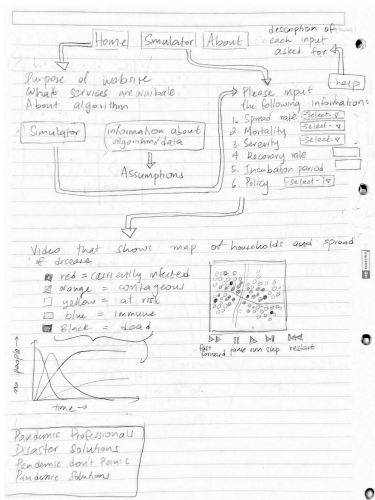 Home Simulator About
description of
each input
asked for
help
Purpose of website
What services are availbale
About algorithm
Simulator
information about
algorithm/data
Assumptions
Please input
the following information:
1. Spread rate -Select-
2. Mortality -Select-
3. Severity -Select-
4 Recovery rate
5. Incubation period
6. Policy -Select-
Video that shows map of households and spread
of disease
red = currently infected
orange = contageous
yellow = at risk
blue = immune
Black = dead
fast
forward
pause
run
step
restart
no people
time
Pandemic Professionals
Disaster Solutions
Pandemic don't Panic
Pandemic Solutions